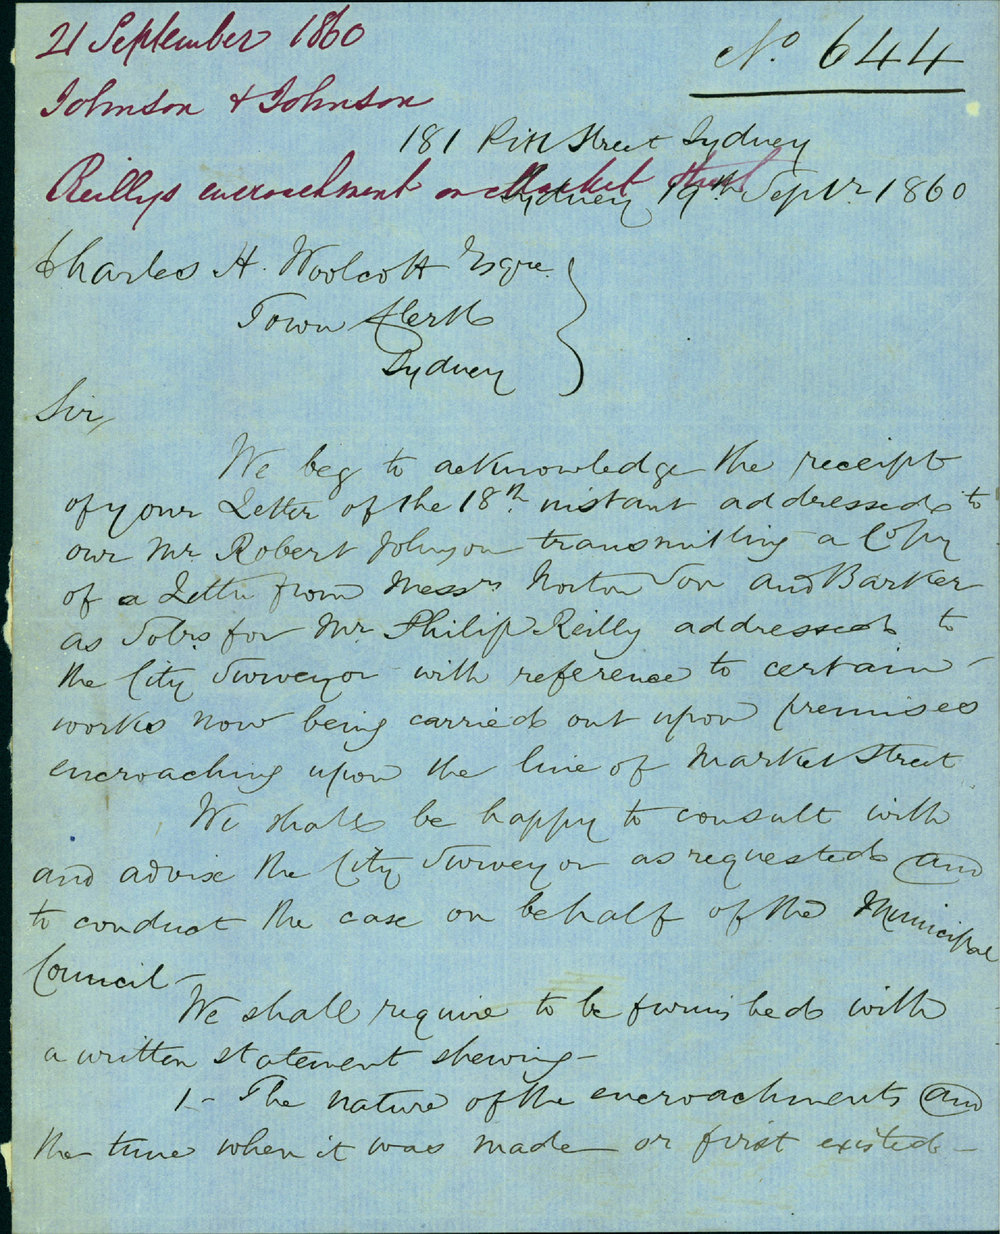 21 September 1860
No. 644
Johnson & Johnson
181 Pitt Street Sydney
Reillys encroachment on Market Street
Sydney 19th Septr. 1860
Charles H. Woolcott Esqre
Town Clerk
Sydney
Sir,
We beg to acknowledge the receipt
of your Letter of the 18th. instant addressed to
our Mr. Robert Johnson transmitting a Copy
of a Letter from Messrs Norton Son and Barker
as Solrs. for Mr. Philip Reilly addressed to
the City Surveyor with reference to certain
works now being carried out upon premises
encroaching upon the line of Market Street
We shall be happy to consult with
and advise the City Surveyor as requested and
to conduct the case on behalf of the Municipal
Council -
We shall require to be furnished with
a written statement shewing -
1 - The nature of the encroachments and
the time when it was made or first existed -